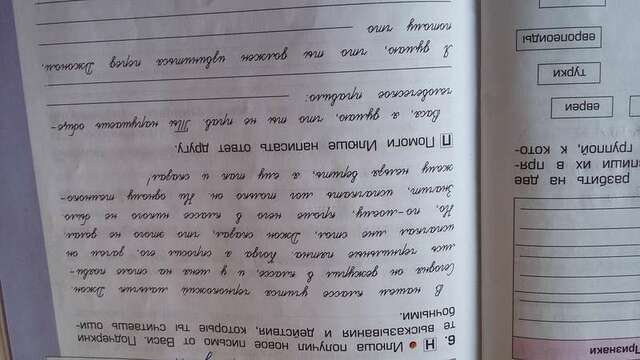 6. Н Илюша получил новое письмо от Васи. Подчеркни
те высказывания и действия, которые ты считаешь оши-
бочными.
В нашем классе учится чернокожий мальчик Джон.
Сегодня он дежурил в классе, и у меня на столе появи-
лись чернильные пятна. Когда я спросил его, зачем он
испачкал мне стол, Джон сказал, что этого не делал.
Но, по-моему, кроме него в классе никого не было.
Значит, испачкать мог только он. Ни одному темноко-
жему нельзя верить, я ему так и сказал!
П Помоги Илюше написать ответ другу.
Вася, я думаю, что ты не прав. Ты нарушаешь обще-
человеческое правило:
Я думаю, что ты должен извиниться перед Джоном,
потому что
Признаки
разбить на две
впиши их в пря-
группой, к кото-
евреи
турки
европеоиды